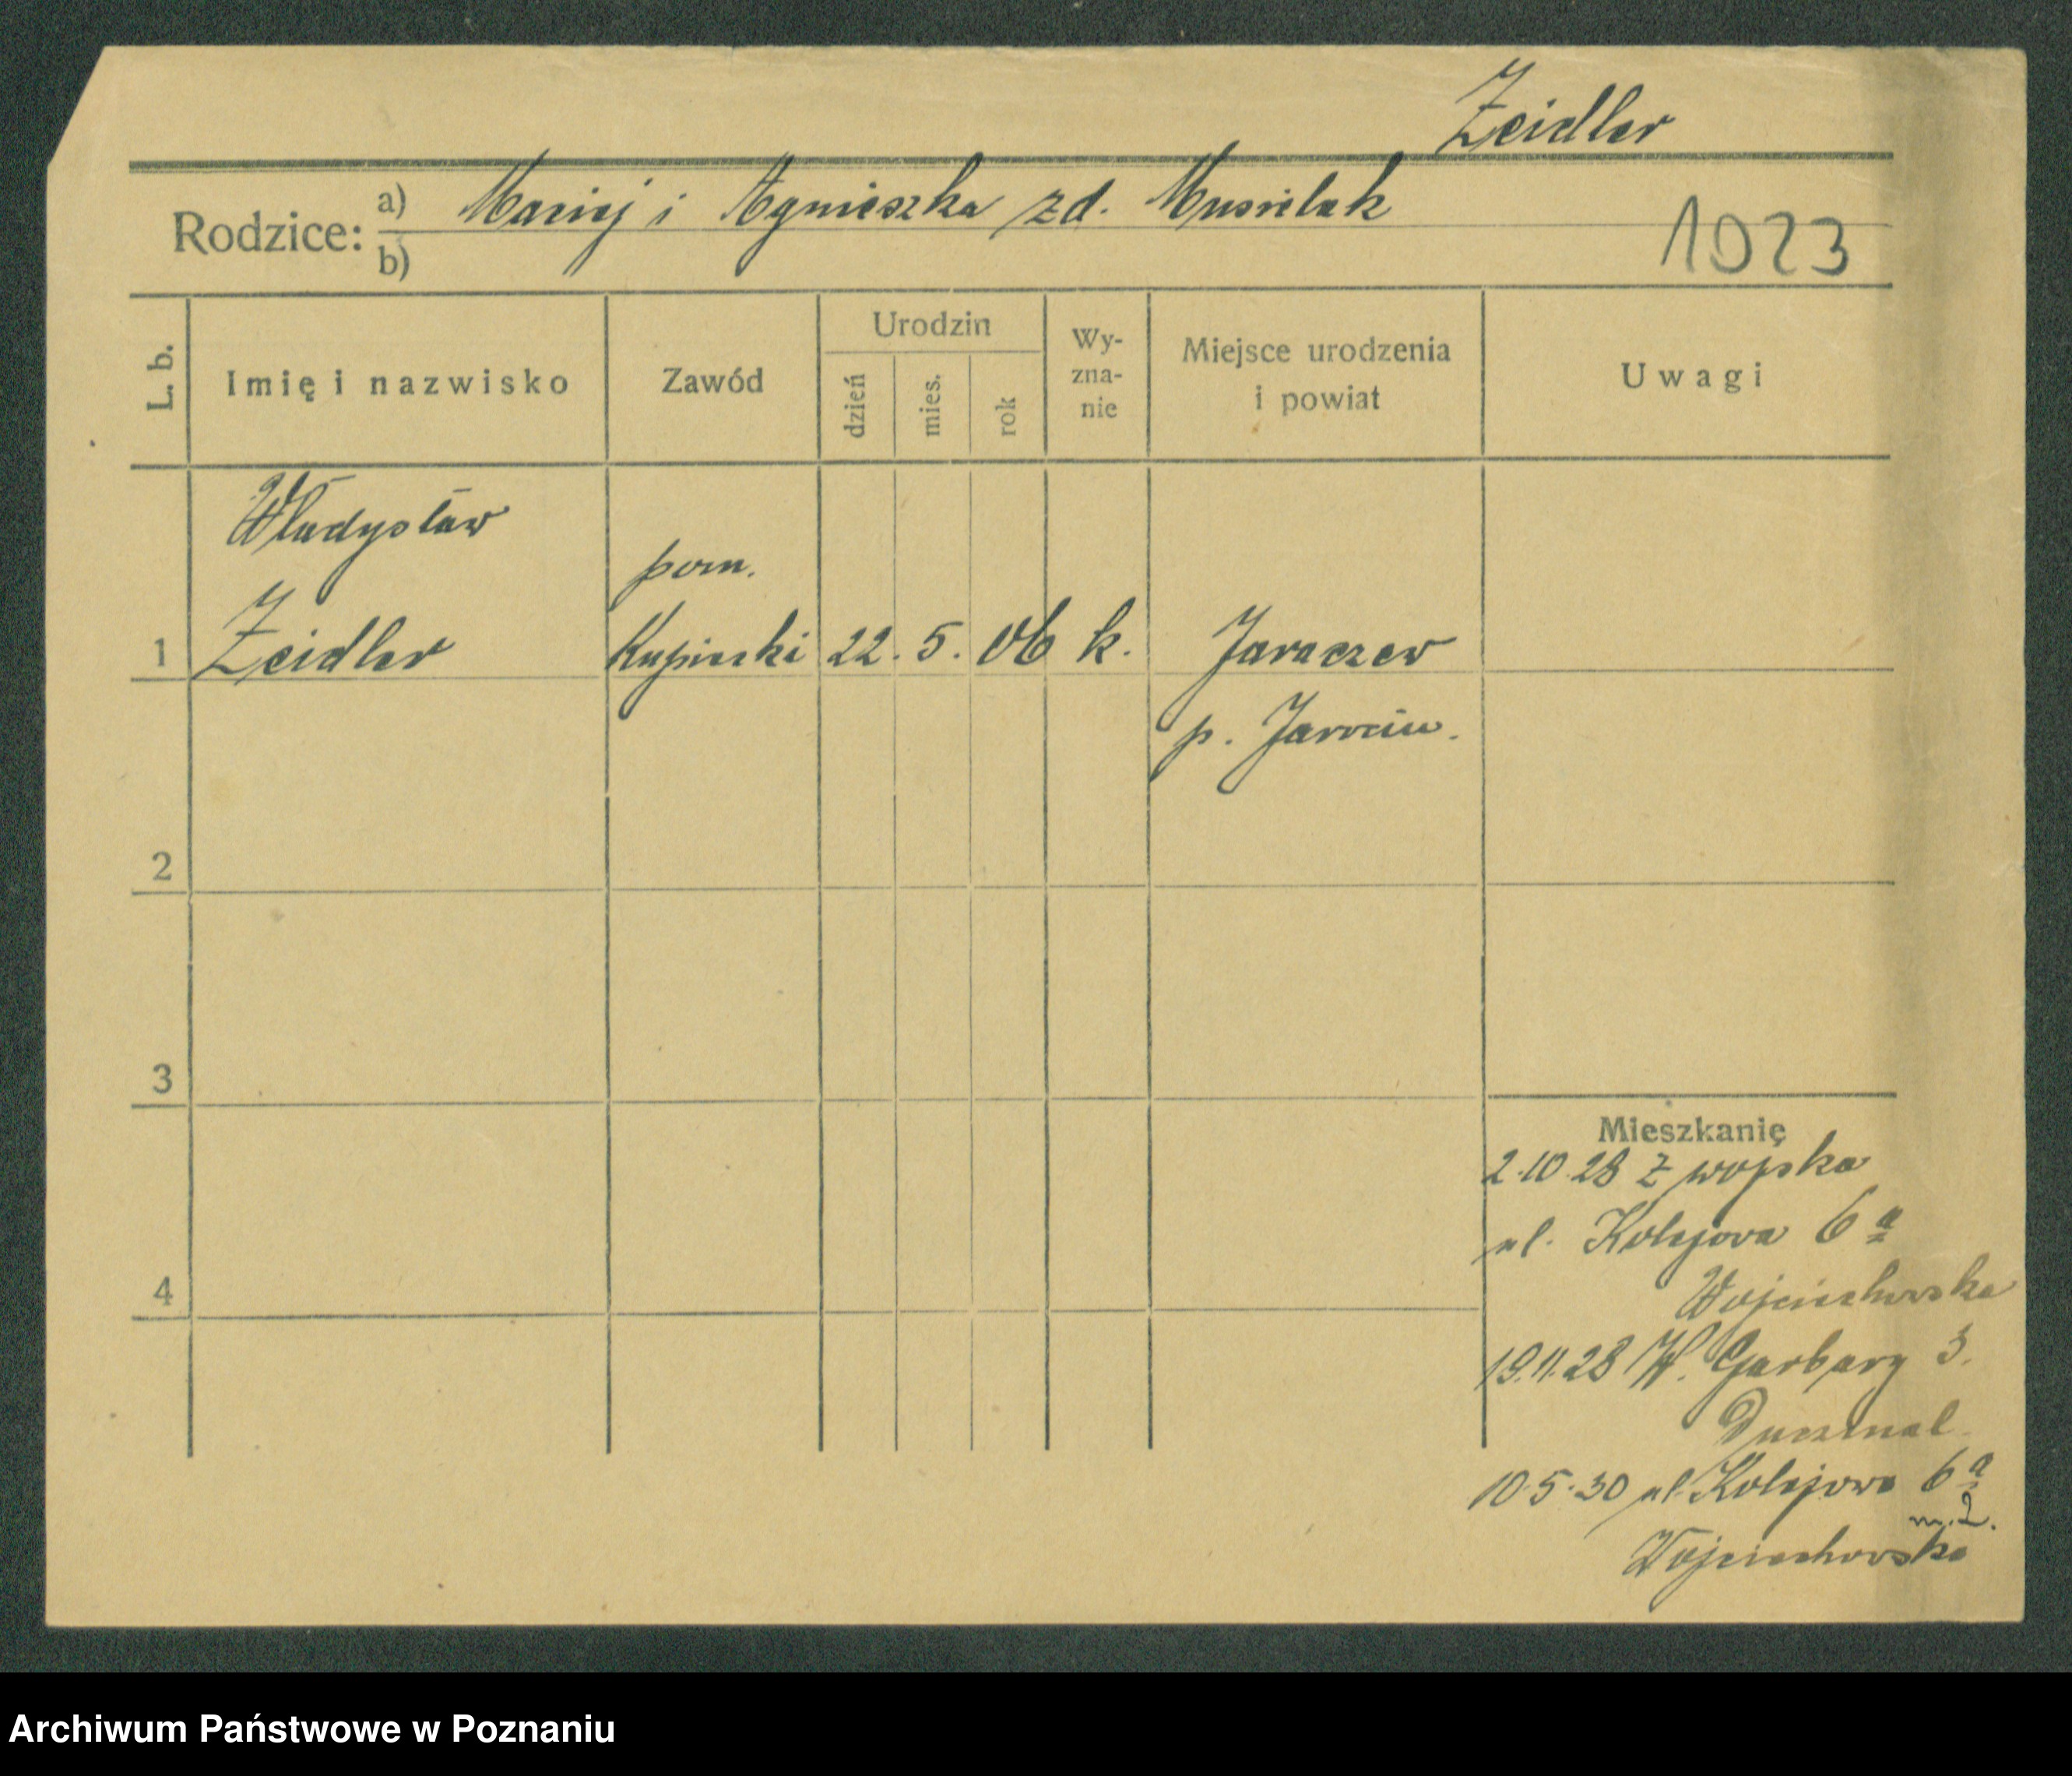 Zeidler
Rodzice: a) Maciej i Agnieszka zd. Musielak
b)
1023
L. b.
Imię i nazwisko
Zawód
Urodzin
dzień
mies.
rok
Wy-
zna-
nie
Miejsce urodzenia
i powiat
Uwagi
Władysław
pom.
1 Zeidler Kupiecki 22. 5. 06 k. Jaraczew
p. Jarocin.
2
3
Mieszkanie
2.10.28 z wojska
ul. Kolejowa 6a
4
Wojciechowska
19.11.28 W. Garbary 3.
10.5.30 ul. Kolejowa 6a
m. 2.
Wojciechowska
Archiwum Państwowe w Poznaniu